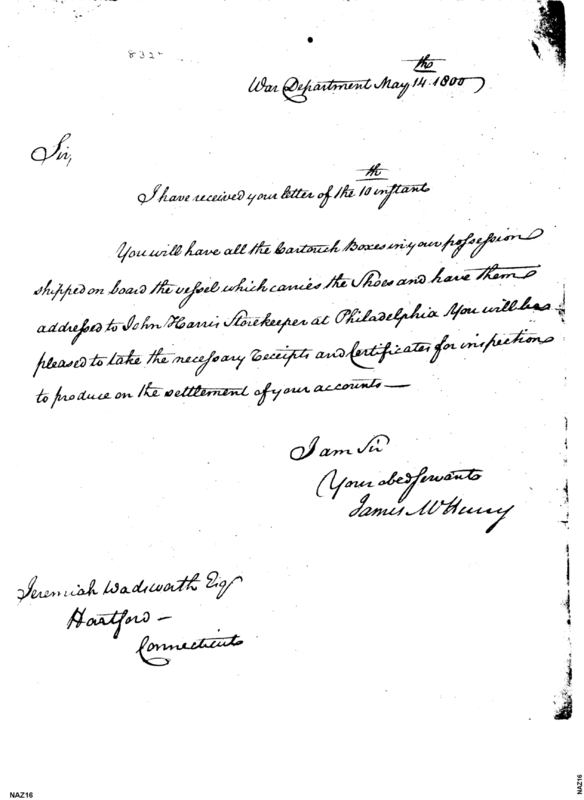 832
War Department May 14th. 1800
Sir,
I have received your letter of the 10th instant
You will have all the Cartouch Boxes in your possession
shipped on board the vessel which carries the Shoes and have them
addressed to John Harris Storekeeper at Philadelphia You will be
pleased to take the necessary receipts and Certificates for inspection
to produce on the settlement of your accounts—
I am Sir
Your obed servant
James McHenry
Jeremiah Wadsworth Esq
Hartford —
Connecticut
NAZ16
NAZ16